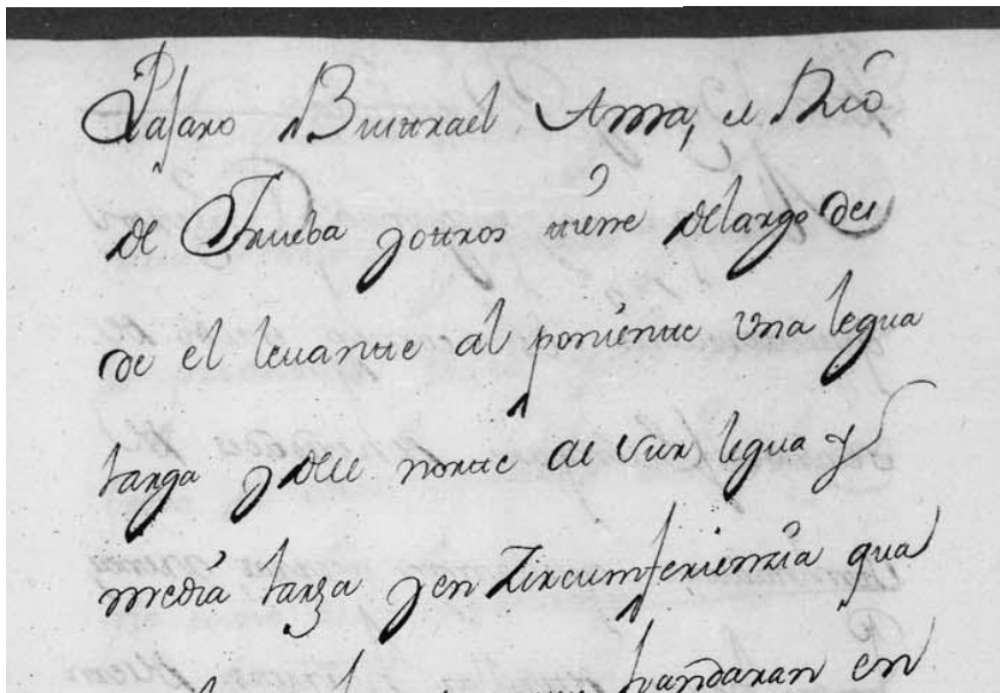 Pajaro Buitrael Ama, el Rio
de Trueba y otros tiene de largo des
de el levante al poniente vna legua
larga y del norte al sur legua y
media larga y en Zircumferienzia qua
handaran en